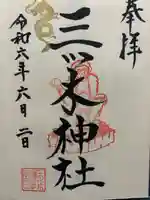 奉拝
三ツ木神社
令和六年六月二日